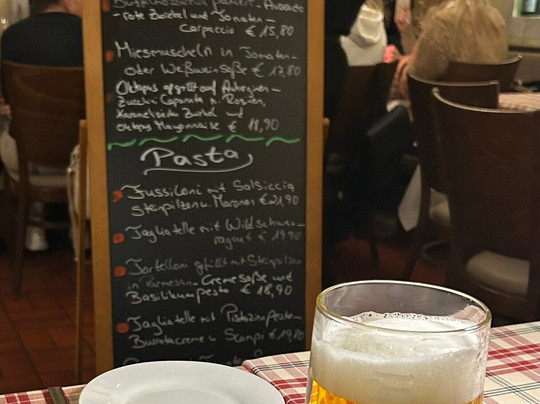 rote Zwiebel und Tomaten-
Carpaccio € 15,80
Miesmuscheln in Tomaten-
oder Weißweinsoße € 17,80
Oktopus gegrillt auf Auberginen-
Zucchini Caponata m. Rosinen,
Zwiebel und
Oktopus Mayonnaise € 18,90
Pasta
Fussiloni mit Salsiccia
Steinpilzen u. Maronen €21,90
Tagliatelle mit Wildschwein-
ragout € 19,90
Tortelloni gefüllt mit Steinpilzen
in Parmesan Cremesoße und
Basilikumpesto € 18,90
Tagliatelle mit Pistazienpesto-
Burratacreme u. Scampi € 19,80